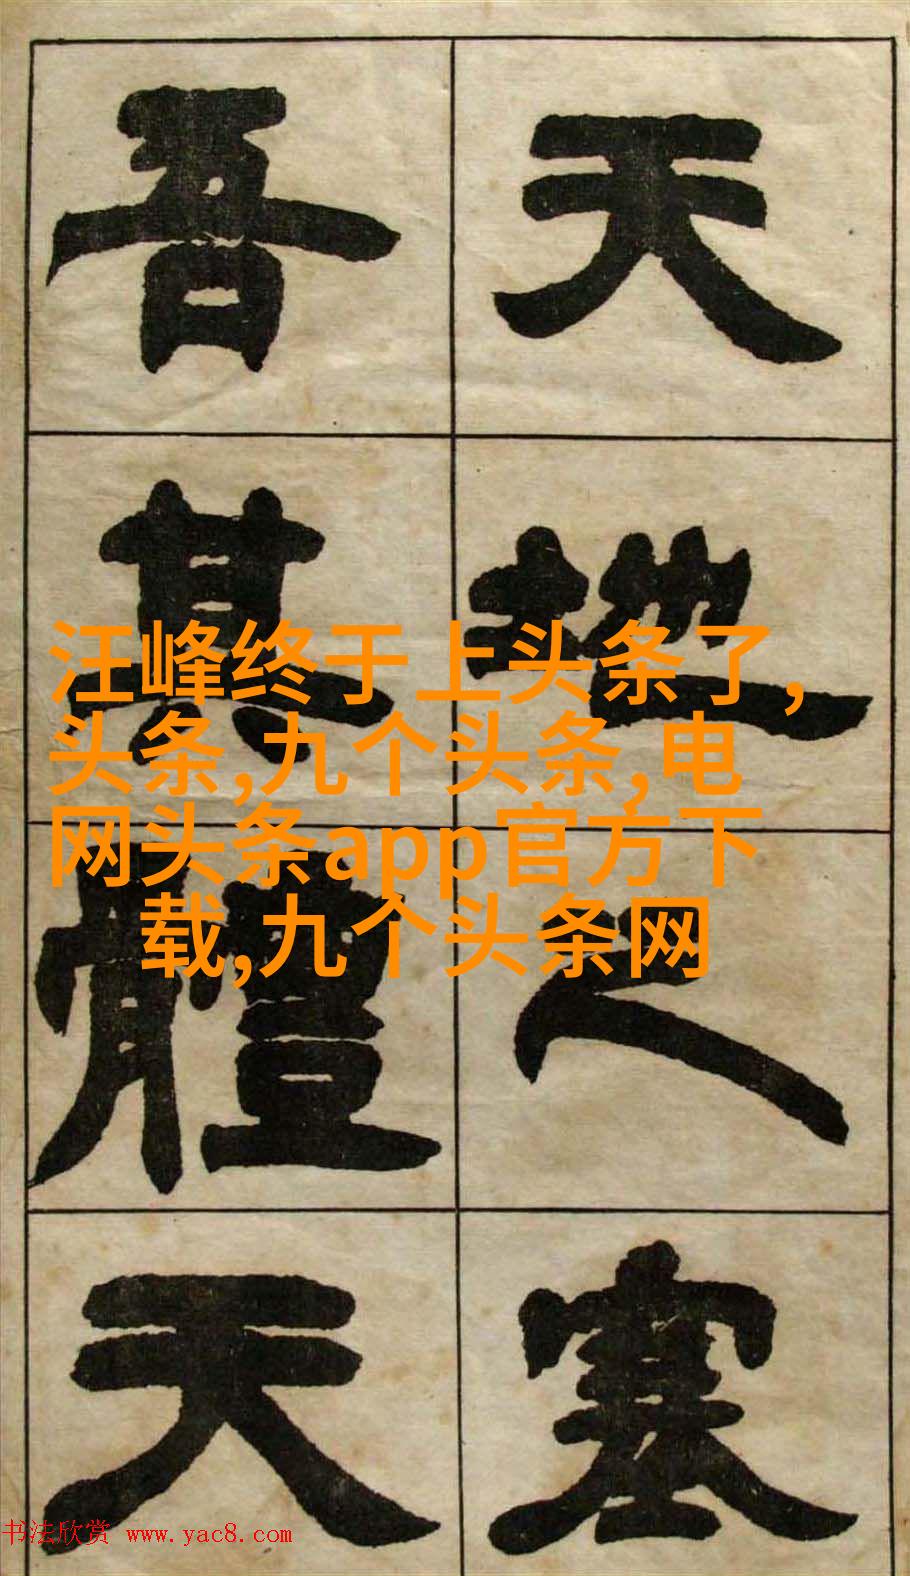 天地之塞
吾其體天
汪峰终于上头条了,
头条,九个头条,电
网头条app官方下
载,九个头条网
书法欣赏 www.yac8.com